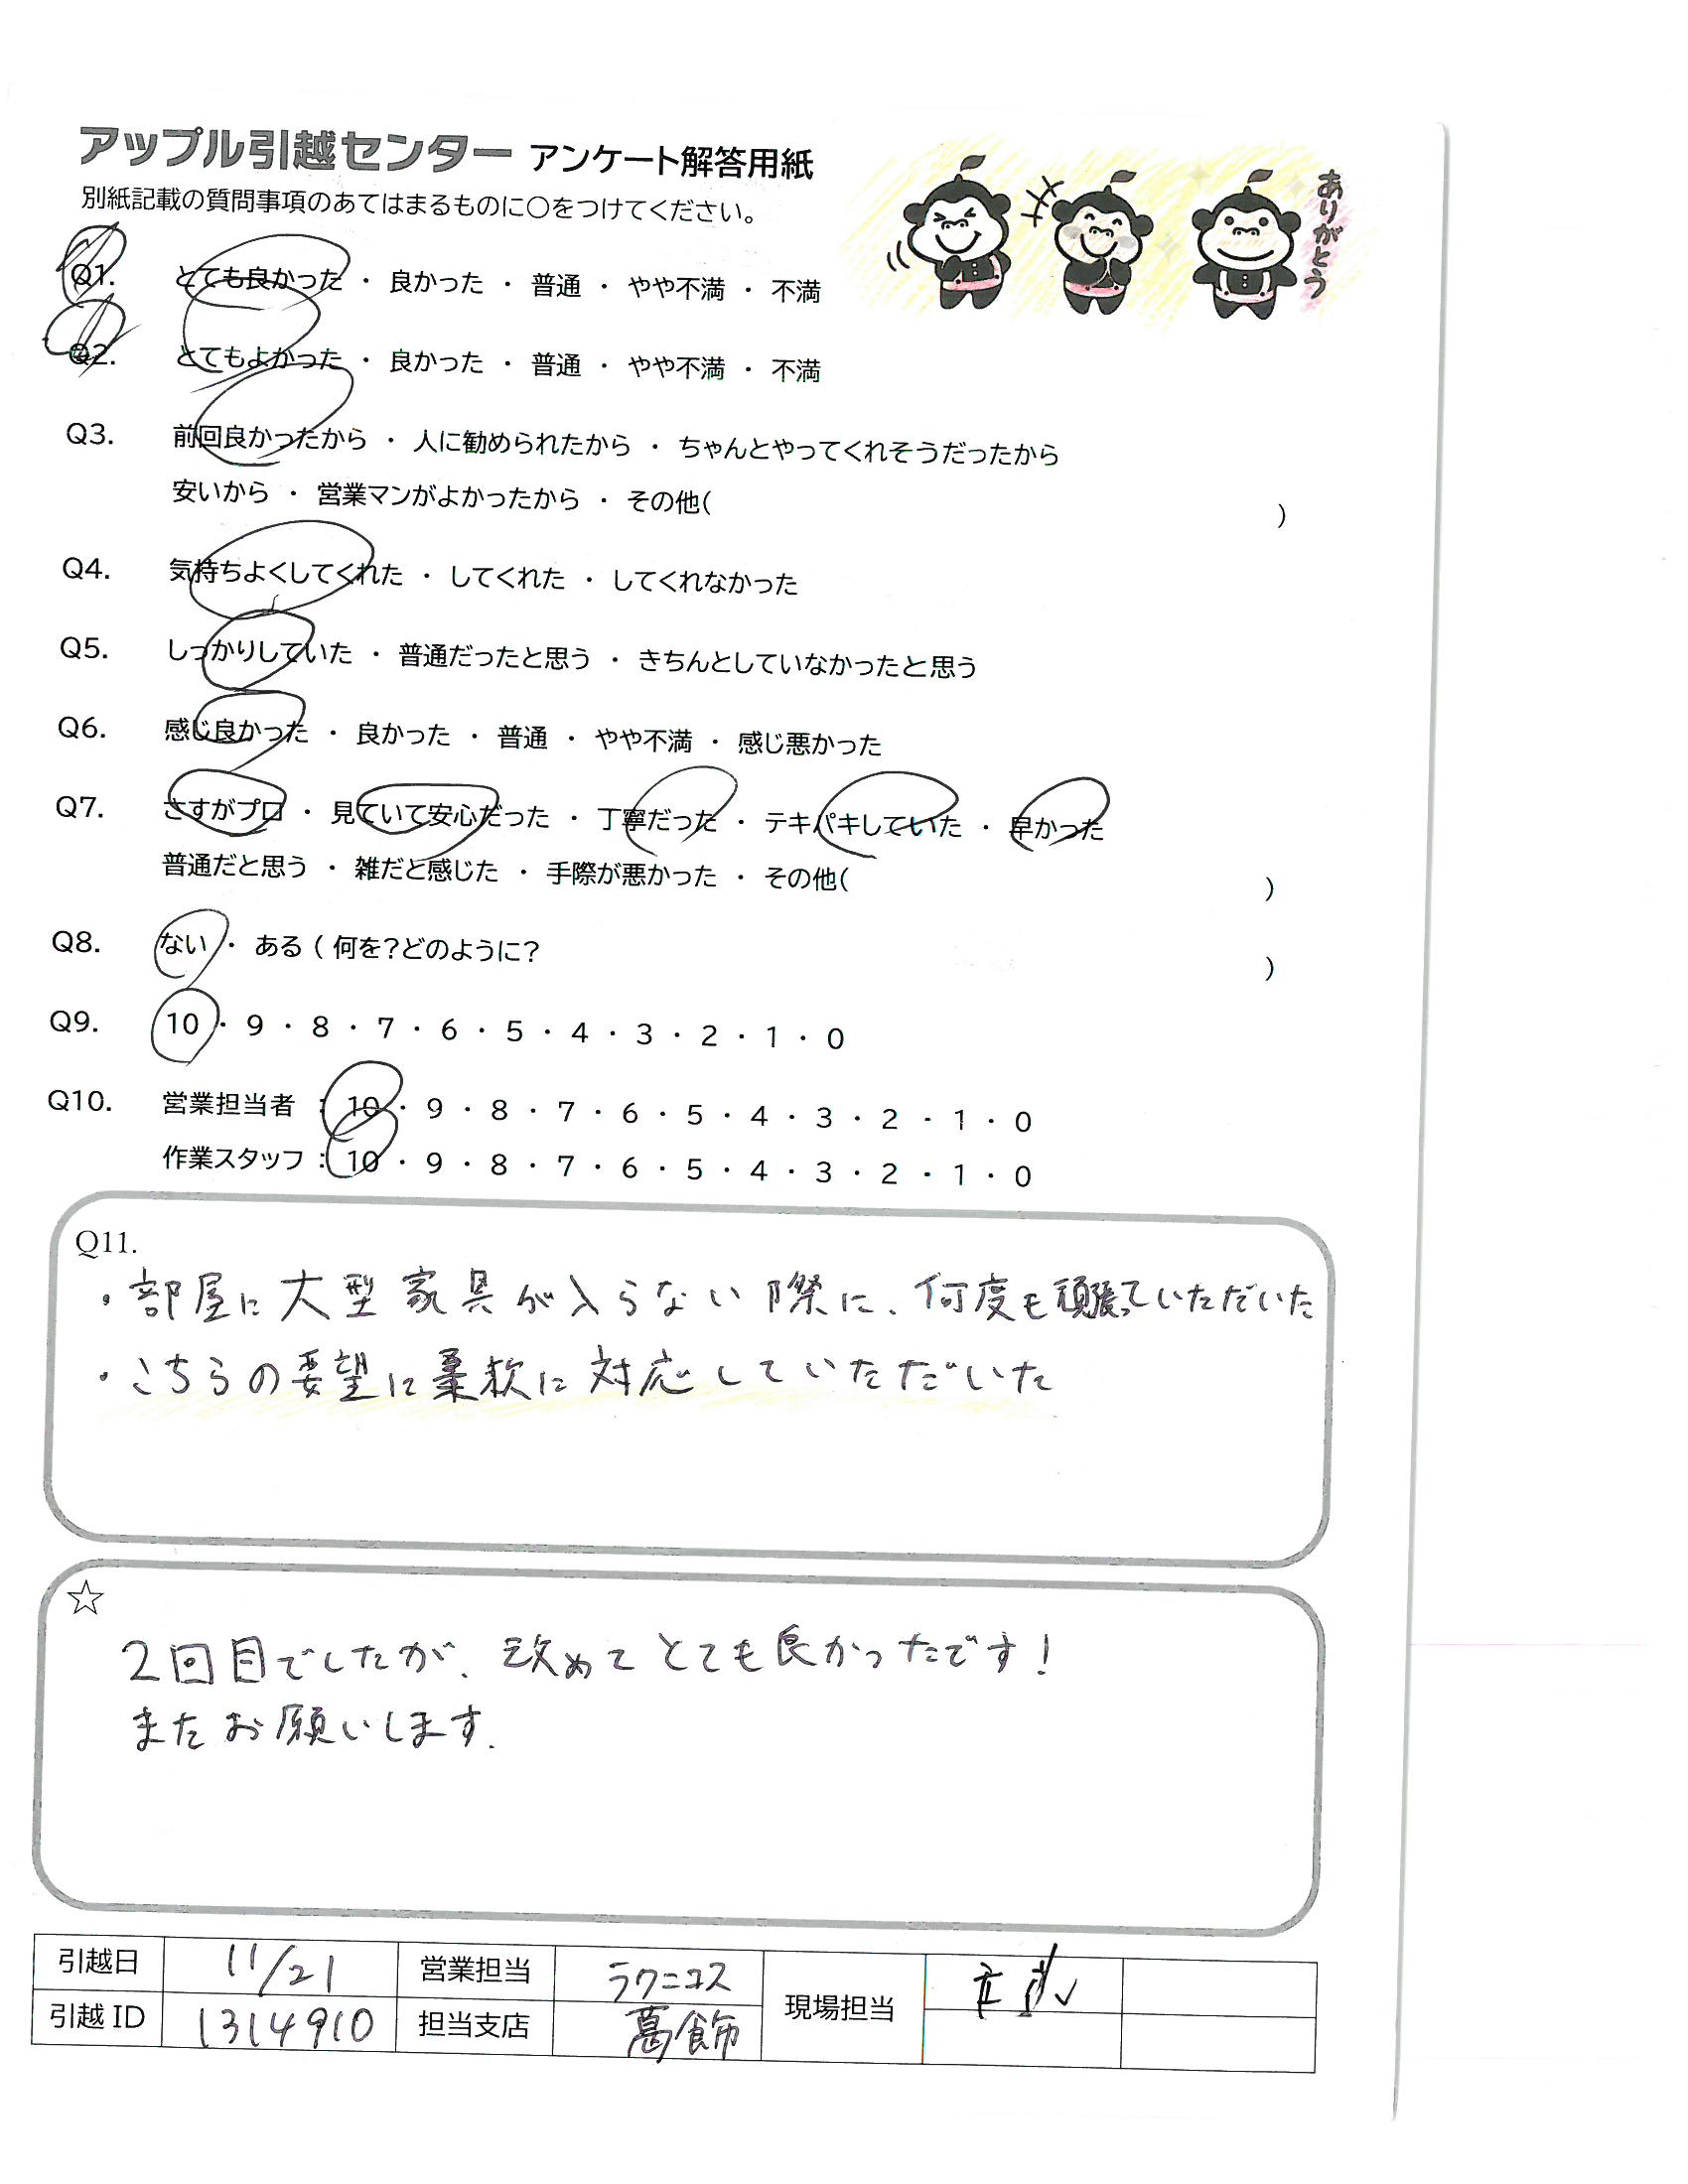 アップル引越センター アンケート解答用紙
別紙記載の質問事項のあてはまるものに○をつけてください。
ありがとう
Q1. とても良かった ・ 良かった ・ 普通 ・ やや不満 ・ 不満
Q2. とてもよかった ・ 良かった ・ 普通 ・ やや不満 ・ 不満
Q3. 前回良かったから ・ 人に勧められたから ・ ちゃんとやってくれそうだったから
安いから ・ 営業マンがよかったから ・ その他( )
Q4. 気持ちよくしてくれた ・ してくれた ・ してくれなかった
Q5. しっかりしていた ・ 普通だったと思う ・ きちんとしていなかったと思う
Q6. 感じ良かった ・ 良かった ・ 普通 ・ やや不満 ・ 感じ悪かった
Q7. さすがプロ ・ 見ていて安心だった ・ 丁寧だった ・ テキパキしていた ・ 早かった
普通だと思う ・ 雑だと感じた ・ 手際が悪かった ・ その他( )
Q8. ない ・ ある ( 何を?どのように? )
Q9. 10 ・ 9 ・ 8 ・ 7 ・ 6 ・ 5 ・ 4 ・ 3 ・ 2 ・ 1 ・ 0
Q10. 営業担当者 : 10 ・ 9 ・ 8 ・ 7 ・ 6 ・ 5 ・ 4 ・ 3 ・ 2 ・ 1 ・ 0
作業スタッフ : 10 ・ 9 ・ 8 ・ 7 ・ 6 ・ 5 ・ 4 ・ 3 ・ 2 ・ 1 ・ 0
Q11.
・部屋に大型家具が入らない際に、何度も頑張っていただいた
・こちらの要望に柔軟に対応していただいた
☆
2回目でしたが、改めてとても良かったです!
またお願いします.
引越日 11/21 営業担当 ラクニコス 現場担当
引越ID 1314910 担当支店 葛飾